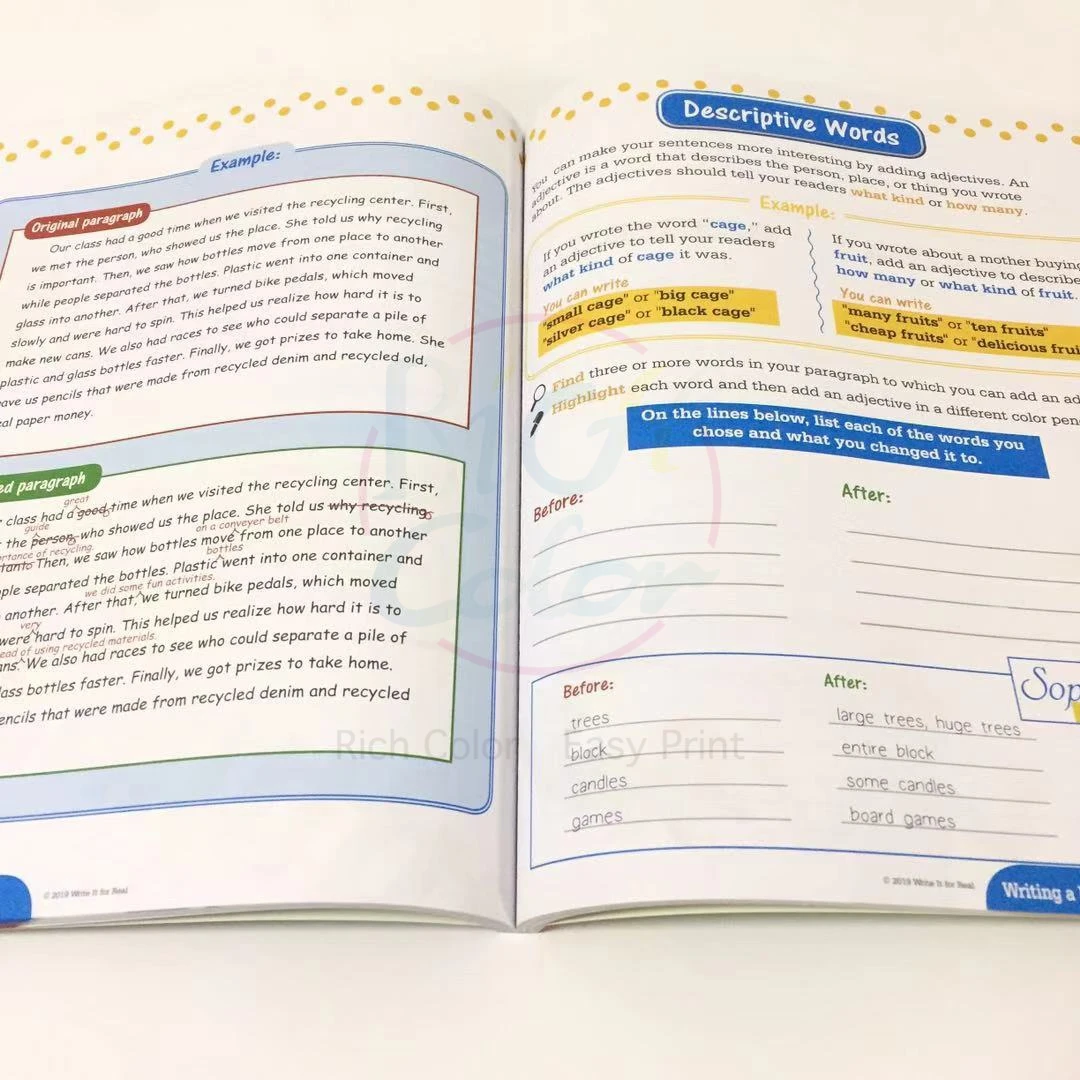 Example:
Original paragraph
Our class had a good time when we visited the recycling center. First,
we met the person, who showed us the place. She told us why recycling
is important. Then, we saw how bottles move from one place to another
while people separated the bottles. Plastic went into one container and
glass into another. After that, we turned bike pedals, which moved
slowly and were hard to spin. This helped us realize how hard it is to
make new cans. We also had races to see who could separate a pile of
plastic and glass bottles faster. Finally, we got prizes to take home. She
ave us pencils that were made from recycled denim and recycled old,
al paper money.
ed paragraph
great
class had a good time when we visited the recycling center. First,
guide
the person, who showed us the place. She told us why recycling
rtance of recycling.
on a conveyer belt
tant. Then, we saw how bottles move from one place to another
bottles
ple separated the bottles. Plastic went into one container and
we did some fun activities.
another. After that, we turned bike pedals, which moved
very
were hard to spin. This helped us realize how hard it is to
ead of using recycled materials.
ans. We also had races to see who could separate a pile of
lass bottles faster. Finally, we got prizes to take home.
encils that were made from recycled denim and recycled
© 2019 Write It for Real
Descriptive Words
You can make your sentences more interesting by adding adjectives. An
adjective is a word that describes the person, place, or thing you wrote
about. The adjectives should tell your readers what kind or how many.
Example:
If you wrote the word "cage," add
an adjective to tell your readers
what kind of cage it was.
You can write
"small cage" or "big cage"
"silver cage" or "black cage"
If you wrote about a mother buying
fruit, add an adjective to describe
how many or what kind of fruit.
You can write
"many fruits" or "ten fruits"
"cheap fruits" or "delicious frui
Find three or more words in your paragraph to which you can add an ad
Highlight each word and then add an adjective in a different color pen
On the lines below, list each of the words you
chose and what you changed it to.
Before:
After:
Sop
Before:
After:
trees
large trees, huge trees
block
entire block
candles
some candles
games
board games
© 2019 Write It for Real
Writing a
Rich Color
Rich Color Easy Print